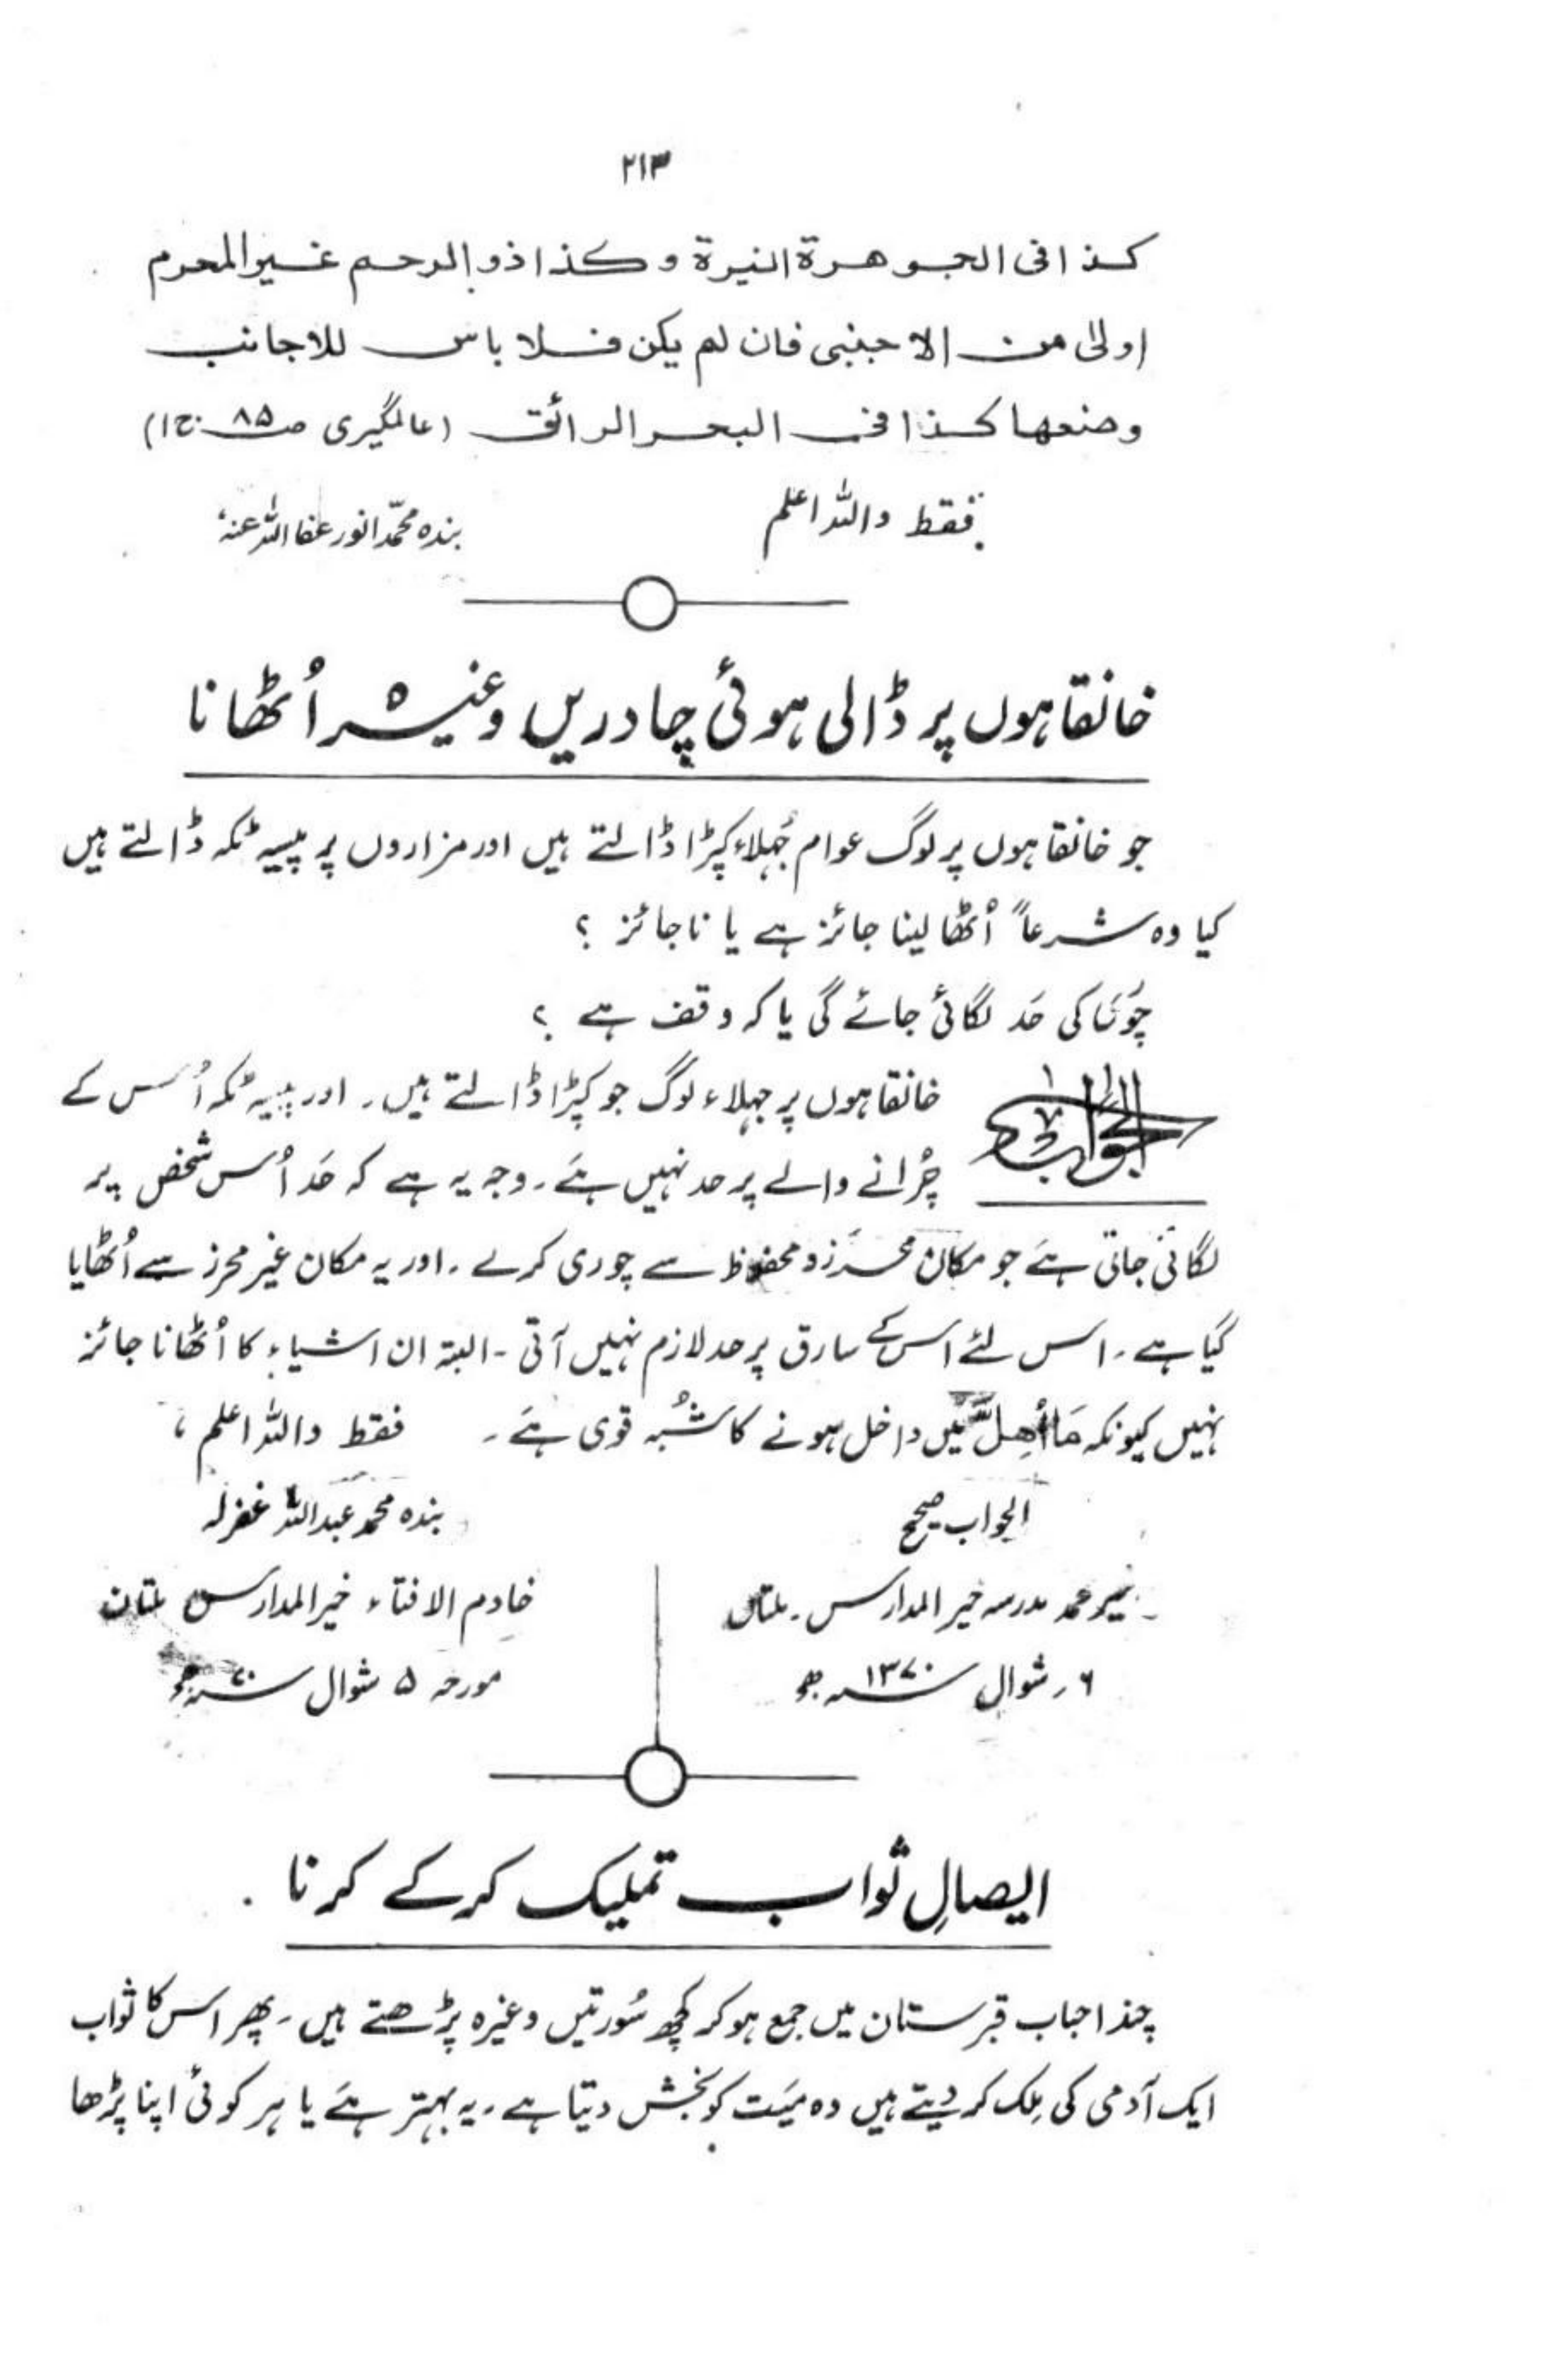 ۲۱۳
كذا فى الجوهرة النيرة وكذا ذو الرحم غير المحرم
اولىٰ من الاجنبى فان لم يكن فلا باس للاجانب
وضعها كذا فى البحر الرائق (عالمگیری ص۸۵ ج۱)
فقط واللہ اعلم
بندہ محمّد انور عفا اللہ عنہٗ
خانقاہوں پر ڈالی ہوئی چادریں وغیرہ اُٹھانا
جو خانقاہوں پر لوگ عوام جُہلاء کپڑا ڈالتے ہیں اور مزاروں پر پیسہ ٹکہ ڈالتے ہیں
کیا وہ شرعاً اُٹھا لینا جائز ہے یا ناجائز ؟
کی حَد لگائی جائے گی یا کہ وقف ہے ؟
الجواب
خانقاہوں پر جہلاء لوگ جو کپڑا ڈالتے ہیں۔ اور پیسہ ٹکہ اُس کے
چُرانے والے پر حد نہیں ہے۔ وجہ یہ ہے کہ حَد اُس شخص پر
لگائی جاتی ہے جو مکان محرز و محفوظ سے چوری کرلے۔ اور یہ مکان غیر محرز سے اُٹھایا
گیا ہے۔ اس لئے اس کے سارق پر حد لازم نہیں آتی ۔ البتہ ان اشیاء کا اُٹھانا جائز
نہیں کیونکہ مَا اُهِلَّ میں داخل ہونے کا شُبہ قوی ہے۔ فقط واللہ اعلم ،
الجواب صحیح
بندہ محمد عبداللہ غفرلہ
خیر محمد مدرسہ خیر المدارس۔ ملتان
خادم الافتاء خیر المدارس ملتان
۶ ر شوال سنہ ۱۳۷۰ ھ
مورخہ ۵ شوال سنہ ۷۰ ھ
ایصالِ ثواب تملیک کر کے کرنا ۔
چند احباب قبرستان میں جمع ہو کر کچھ سُورتیں وغیرہ پڑھتے ہیں۔ پھر اس کا ثواب
ایک آدمی کی مِلک کر دیتے ہیں وہ میّت کو بخش دیتا ہے۔ یہ بہتر ہے یا ہر کوئی اپنا پڑھا